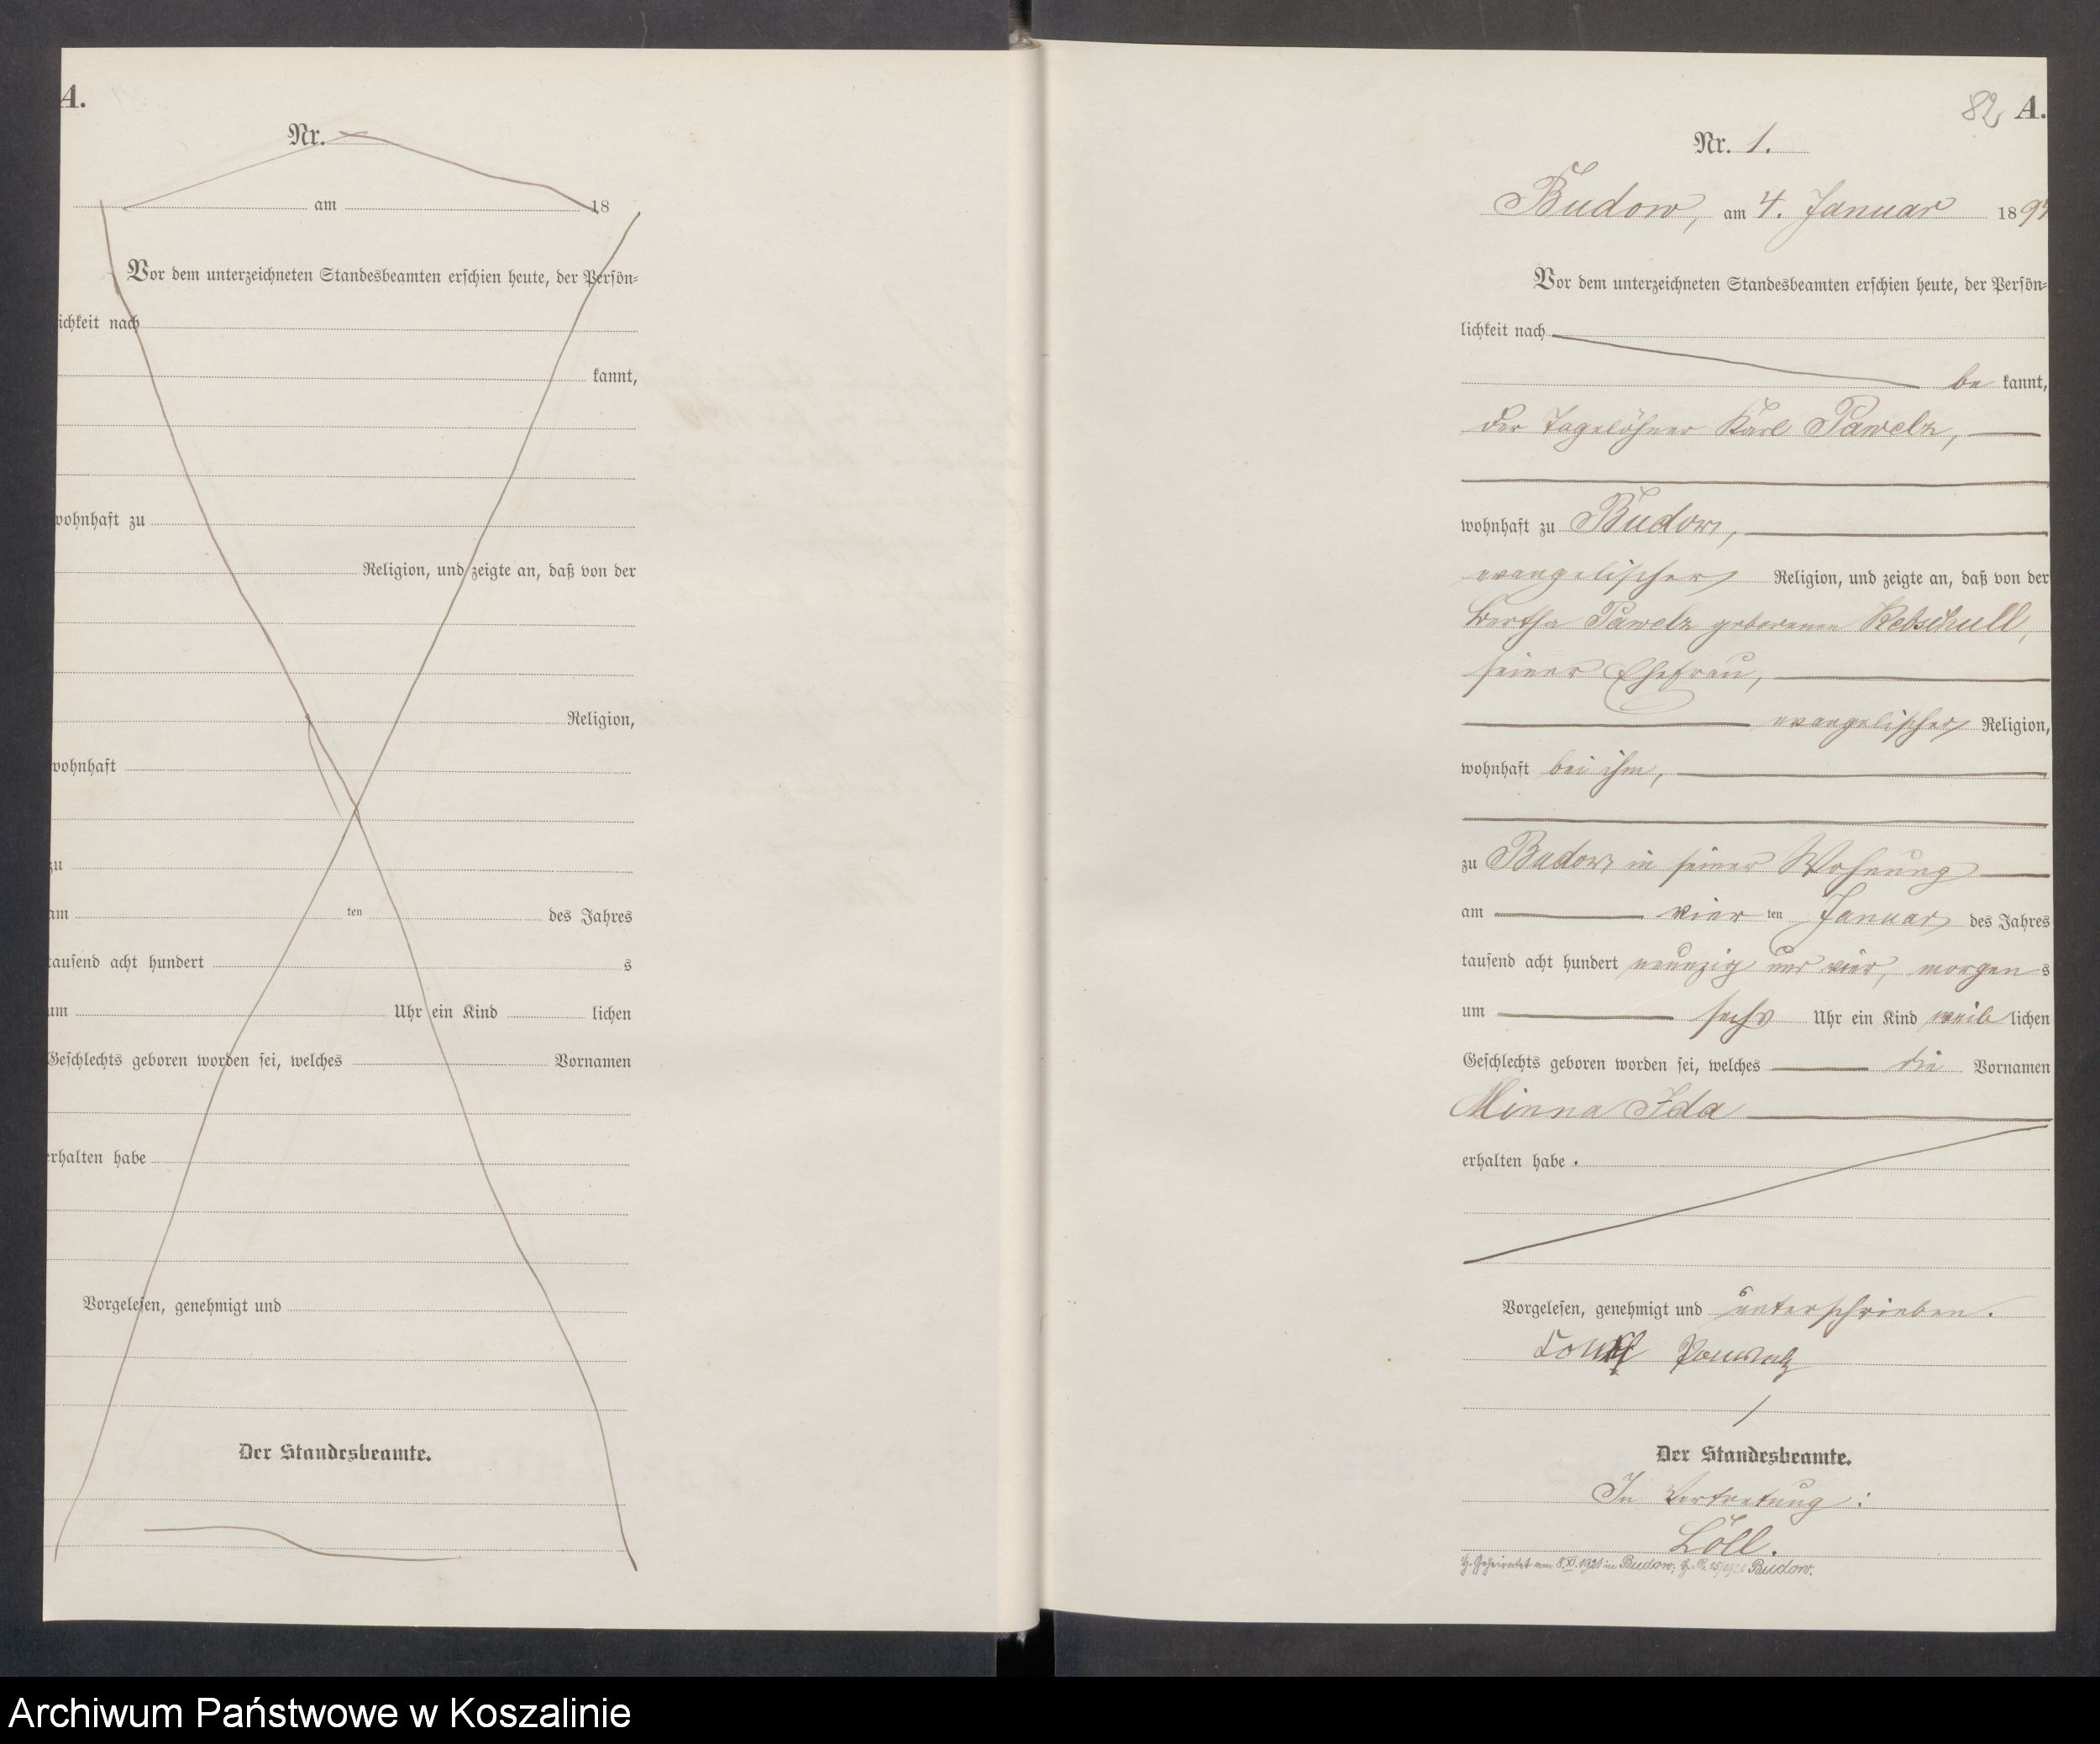 A.
Nr.
am 18
Vor dem unterzeichneten Standesbeamten erschien heute, der Persön=
lichkeit nach
kannt,
wohnhaft zu
Religion, und zeigte an, daß von der
Religion,
wohnhaft
zu
am ten des Jahres
tausend acht hundert s
um Uhr ein Kind lichen
Geschlechts geboren worden sei, welches Vornamen
erhalten habe
Vorgelesen, genehmigt und
Der Standesbeamte.
82 A.
Nr. 1.
Budow, am 4. Januar 1894
Vor dem unterzeichneten Standesbeamten erschien heute, der Persön=
lichkeit nach
be kannt,
der Tagelöhner Karl Pawelz,
wohnhaft zu Budow,
evangelischer Religion, und zeigte an, daß von der
Bertha Pawelz geborenen Rebschull,
seiner Ehefrau,
evangelischer Religion,
wohnhaft bei ihm,
zu Budow in seiner Wohnung
am vier ten Januar des Jahres
tausend acht hundert neunzig und vier, morgen s
um sechs Uhr ein Kind weib lichen
Geschlechts geboren worden sei, welches die Vornamen
Minna Ida
erhalten habe.
Vorgelesen, genehmigt und unterschrieben.
Pawelz
Der Standesbeamte.
In Vertretung:
Löll.
Geheiratet am 8.XI.1921 in Budow; Budow.
Archiwum Państwowe w Koszalinie